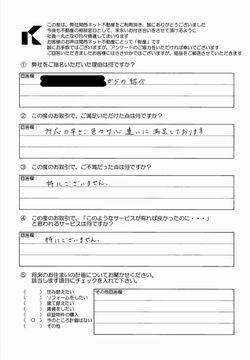 この度は、関西ネット不動産をご利用頂き、誠にありがとうございました
今後も不動産の相談窓口として、末永いお付き合いをさせて頂けるように
社員一丸となり日々精進して参ります
お客様のお声は関西ネット不動産にとって「財産」です
誠にお手数ではございますが、アンケートのご協力をいただければ幸いでございます
ご回答いただきましたお客様には、ささやかではございますが、粗品をご郵送させていただきます
① 弊社をご指名いただいた理由は何ですか?
回答欄:
からの紹介
② この度のお取引で、ご満足いただけた点は何ですか?
回答欄:
対応の早さ、色々な心遣いに満足しております
③ この度のお取引で、ご不満だった点は何ですか?
回答欄:
特にございません。
④ この度のお取引で、「このようなサービスが有れば良かったのに・・・」
と思われるサービスは何ですか?
回答欄:
特にございません。
⑤ 将来のお住まいの計画についてお聞かせください。
該当します項目にチェックを入れて下さい。
( ) 住み替えたい
( ) リフォームをしたい
( ) 建て替えたい
( ) 賃貸をしたい
( ) 収益物件の購入
( ☑ ) 今のところ計画はない
( ) その他
その他回答欄: